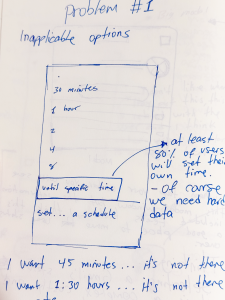 Problem #1
Inapplicable options
30 minutes
1 hour
2
4
8
until specific time
set... a schedule
at least
80% of users
will set their
own time.
- Of course
we need hard
data
I want 45 minutes... it's not there
I want 1:30 hours... it's not there